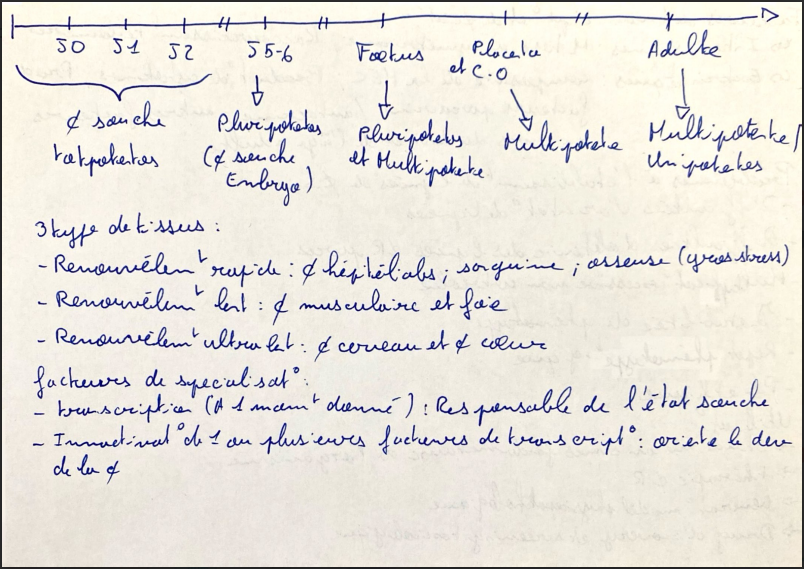 J0 J1 J2 J5-6 Fœtus Placenta et C.O Adulte
¢ souche totipotentes
Pluripotentes (¢ souche Embryo)
Pluripotentes et Multipotente
Multipotente
Multipotente/ Unipotentes
3 type de tissus :
- Renouvélemᵗ rapide : ¢ hépitéliales ; sanguine ; osseuse (gros stress)
- Renouvélemᵗ lent : ¢ musculaire et foie
- Renouvélemᵗ ultra lent : ¢ cerveau et ¢ cœur
facteurs de spécialisat° :
- transcription (A 1 momᵗ donné) : Responsable de l'état souche
- Innactivat° de 1 ou plusieurs facteurs de transcript° : oriente le dev
de la ¢